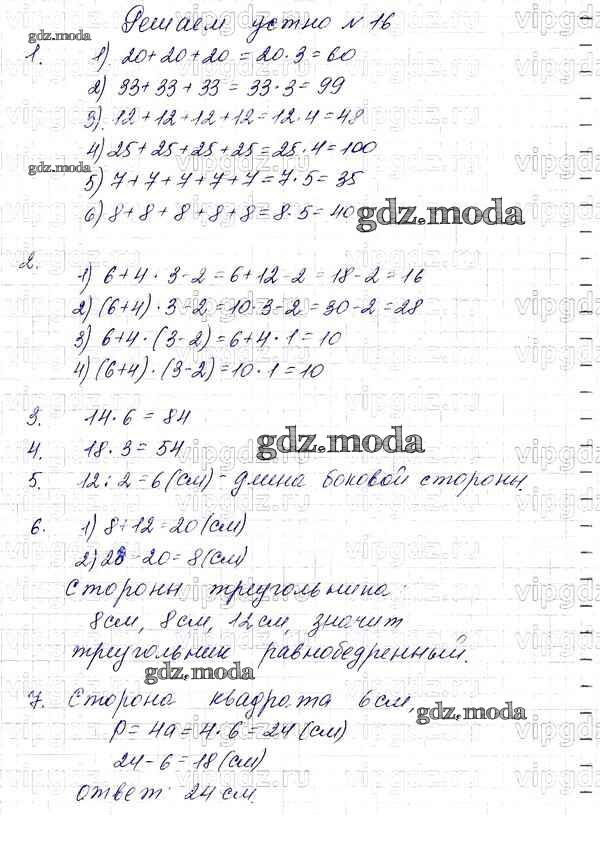 Решаем устно №16
1. 1) 20+20+20 = 20·3 = 60
2) 33+33+33 = 33·3 = 99
3) 12+12+12+12=12·4=48
4) 25+25+25+25=25·4=100
5) 7+7+7+7+7=7·5=35
6) 8+8+8+8+8=8·5=40
gdz.moda
2.
1) 6+4·3-2=6+12-2=18-2=16
2) (6+4)·3-2=10·3-2=30-2=28
3) 6+4·(3-2)=6+4·1=10
4) (6+4)·(3-2)=10·1=10
3. 14·6=84
4. 18·3=54
gdz.moda
5. 12:2=6(см) - длина боковой стороны.
6. 1) 8+12=20(см)
2) 28-20=8(см)
Стороны треугольника:
8см, 8см, 12см, значит
треугольник равнобедренный.
gdz.moda
7. Сторона квадрата 6см,
gdz.moda
P=4a=4·6=24(см)
24-6=18(см)
Ответ: 24см.